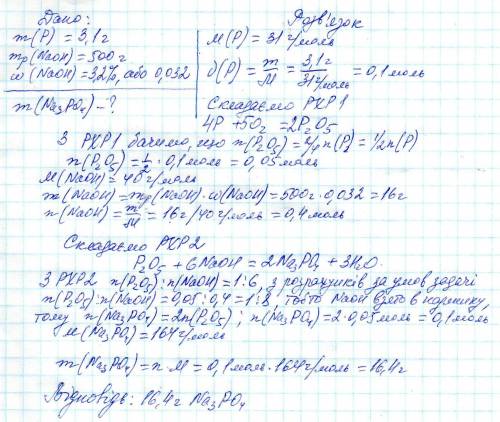 Дано:
m(P) = 3,1г
mр(NaOH) = 500г
ω(NaOH) = 3,2%, або 0,032
m(Na₃PO₄) - ?
Розв'язок
M(P) = 31 г/моль
ν(P) = m/M = 3,1г/31г/моль = 0,1 моль
Складаємо РХР1
4P + 5O₂ = 2P₂O₅
З РХР1 бачимо, що n(P₂O₅) = 2/4 n(P) = 1/2 n(P)
n(P₂O₅) = 1/2 · 0,1 моль = 0,05 моль
M(NaOH) = 40 г/моль
m(NaOH) = mр(NaOH) · ω(NaOH) = 500г · 0,032 = 16г
n(NaOH) = m/M = 16г/40 г/моль = 0,4 моль
Складаємо РХР2
P₂O₅ + 6NaOH = 2Na₃PO₄ + 3H₂O
З РХР2 n(P₂O₅) : n(NaOH) = 1:6, з розрахунків за умов задачі
n(P₂O₅) : n(NaOH) = 0,05 : 0,4 = 1:8, тобто NaOH взято в надлишку,
тому n(Na₃PO₄) = 2n(P₂O₅); n(Na₃PO₄) = 2 · 0,05 моль = 0,1 моль
M(Na₃PO₄) = 164 г/моль
m(Na₃PO₄) = n · M = 0,1 моль · 164 г/моль = 16,4г
Відповідь: 16,4г Na₃PO₄